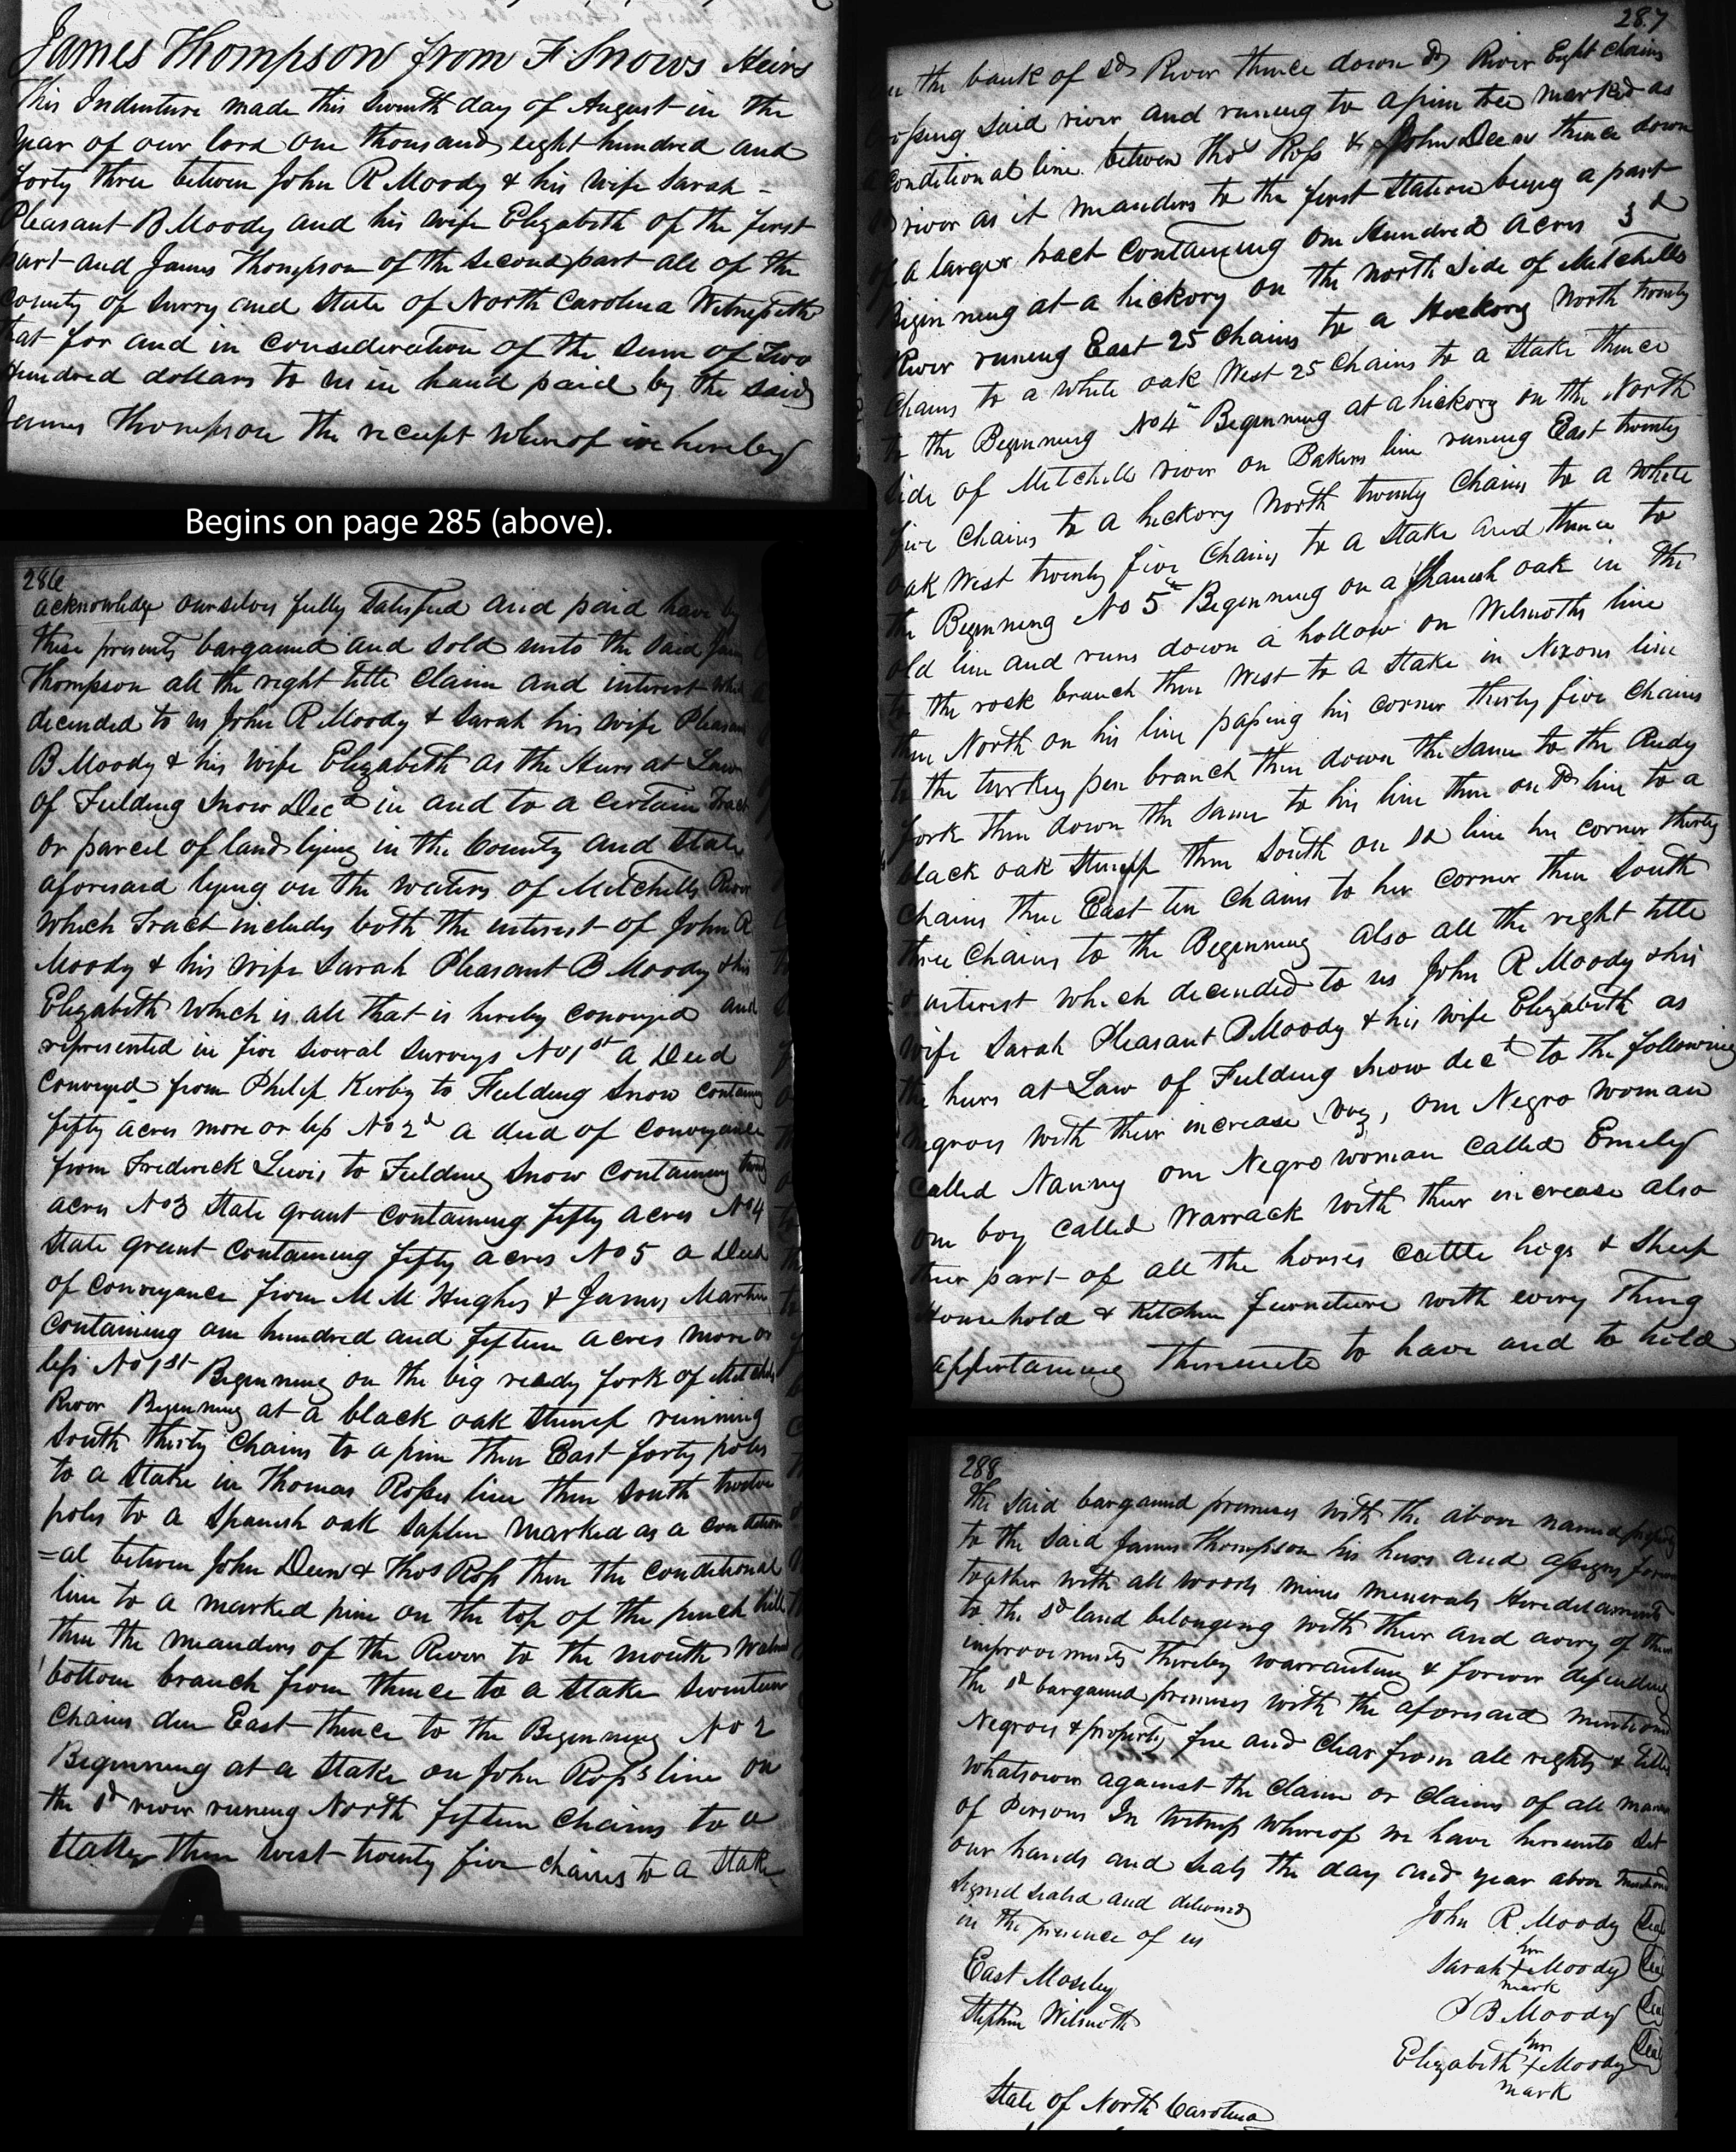 James Thompson from F. Snows Heirs
This Indenture made this Seventh day of August in the
year of our lord one thousand eight hundred and
forty three betwen John R Moody & his wife Sarah -
Pleasant B Moody and his wife Elizabeth of the first
part and James Thompson of the second part all of the
county of Surry and State of North Carolina Witnesseth
that for and in consideration of the sum of Two
Hundred dollars to us in hand paid by the said
James Thompson the receipt whereof we hereby
Begins on page 285 (above).
286
acknowledge ourselves fully satisfied and paid have by
these presents bargained and sold unto the said
Thompson all the right title claim and interest
decended to us John R Moody & Sarah his wife Pleasant
B Moody & his wife Elizabeth as the Heirs at Law
of Feilding Snow Decd in and to a certain Tract
or parcel of land lying in the County and State
aforesaid lying on the waters of Mitchells River
which Tract includes both the interest of John R
Moody & his wife Sarah Pleasant B Moody & his
Elizabeth which is all that is hereby conveyed and
represented in five several surveys No 1st a Deed
conveyed from Philip Kirby to Feilding Snow containing
fifty acres more or less No 2d a deed of conveyance
from Fredrick Lewis to Feilding Snow containing
acres No 3 State grant containing fifty acres No 4
State grant containing fifty acres No 5 a Deed
of conveyance from M M Hughes & James Martin
containing one hundred and fifteen acres more or
less No 1st Beginning on the big ready fork of Mitchells
River Beginning at a black oak stump running
South thirty chains to a pine then East forty poles
to a Stake in Thomas Rosses line then South twelve
poles to a Spanish oak saplin marked as a condition
=al betwen John Deen & Thos Ross then the conditional
line to a marked pine on the top of the hill
then the meanders of the River to the mouth
bottom branch from thence to a stake seventeen
chains due East thence to the Beginning No 2
Beginning at a Stake on John Ross's line on
the sd river runing North fifteen chains to a
then west twenty five chains to a Stake
287
on the bank of sd River thence down sd River Eight chains
crossing said river and runing to a pine tree marked as
a conditional line betwen Thos Ross & John Deen thence down
river as it meanders to the first station being a part
of a larger tract containing one Hundred acres 3d
Beginning at a hickory on the north side of Mitchells
River runing East 25 chains to a Hickory North twenty
Chains to a white oak West 25 chains to a Stake thence
to the Beginning No 4 Beginning at a hickory on the North
side of Mitchells river on Bakers line runing East twenty
five chains to a hickory North twenty Chains to a white
oak West twenty five Chains to a Stake and thence to
the Beginning No 5 Beginning on a Spanish oak in the
old line and runs down a hollow on Wilmoths line
to the rock branch then West to a Stake in Nixons line
then North on his line passing his corner thirty five chains
to the turkey pen branch then down the same to the Redy
fork then down the same to his line then on sd line to a
black oak stump then South on sd line her corner thirty
chains then East ten chains to her corner then South
three Chains to the Beginning also all the right title
& interest which decended to us John R Moody & his
wife Sarah Pleasant B Moody & his wife Elizabeth as
the heirs at Law of Feilding Snow decd to the following
negroes with their increase viz, one Negro woman
called Nanny one Negro woman called Emely
one boy called Warrack with their increase also
their part of all the horses cattle hogs & sheep
Household & Kitchen furneture with every Thing
appertaining thereunto to have and to hold
288
the said bargained premises with the above named
to the said James Thompson his heirs and assigns
together with all woods mines minerals Hereditaments
to the sd land belonging with their and every of their
improvements thereby warranting & forever defending
the sd bargained premises with the aforesaid mentioned
Negroes & property free and clear from all rights & titles
whatsoever against the claim or claims of all manner
of Persons In witness whereof we have hereunto set
our hands and seals the day and year above
Signed sealed and delivered
in the presence of us
John R. Moody Seal
East Moseley
Sarah her X mark Moody Seal
Stephen Wilmoth
P B Moody Seal
Elizabeth her X mark Moody Seal
State of North Carolina